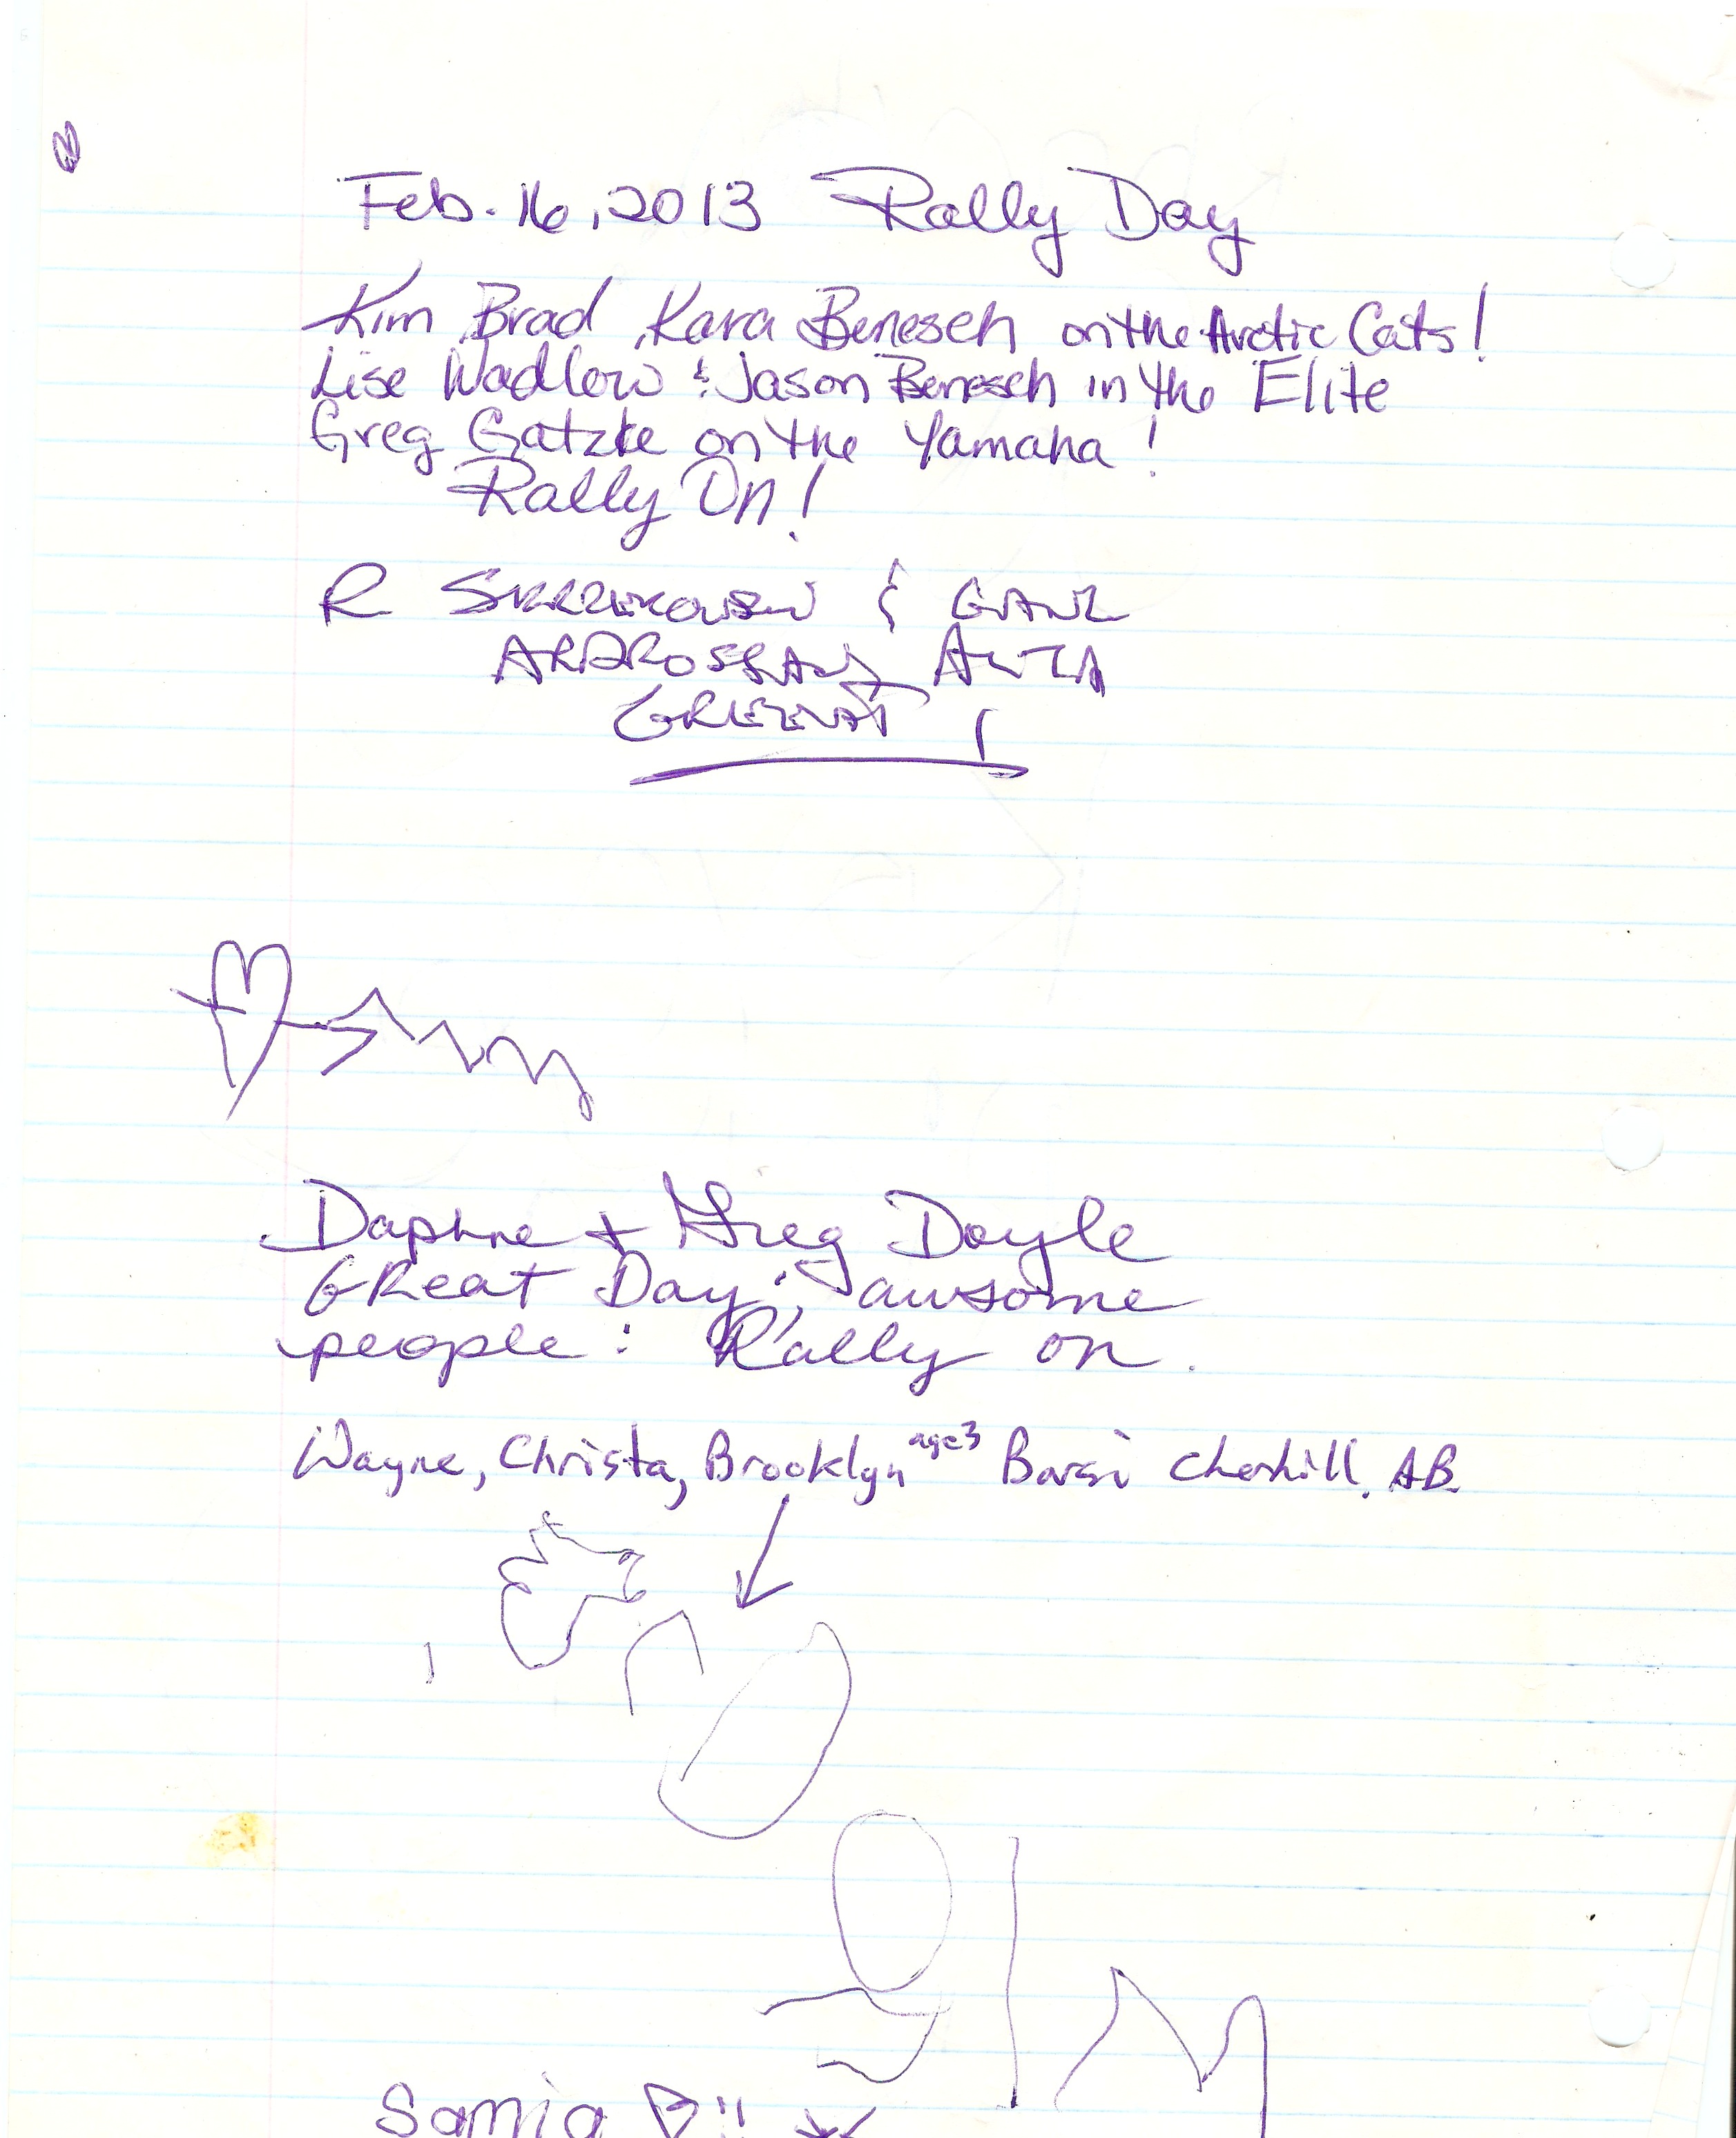 Feb. 16, 2013 Rally Day
Kim Brad, Kara Benesch on the Arctic Cats!
Lise Wadlow & Jason Benesch in the Elite
Greg Gatzke on the Yamaha!
Rally On!
R &
ARDROSSAN
Daphne + Greg Doyle
GReat Day: awsome
people: Rally on.
Wayne, Christa, Brooklyn age 3 Barsi Cherhill, AB.
Samia !!